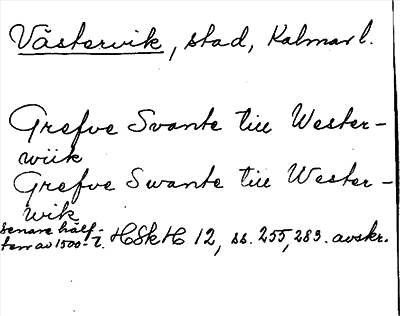 Västervik, stad, Kalmar l.
Grefve Svante till Wester-
wiik
Grefve Swante till Wester-
wik
senare hälf-
ten av 1500-t. HSkH 12, ss. 255, 283. avskr.